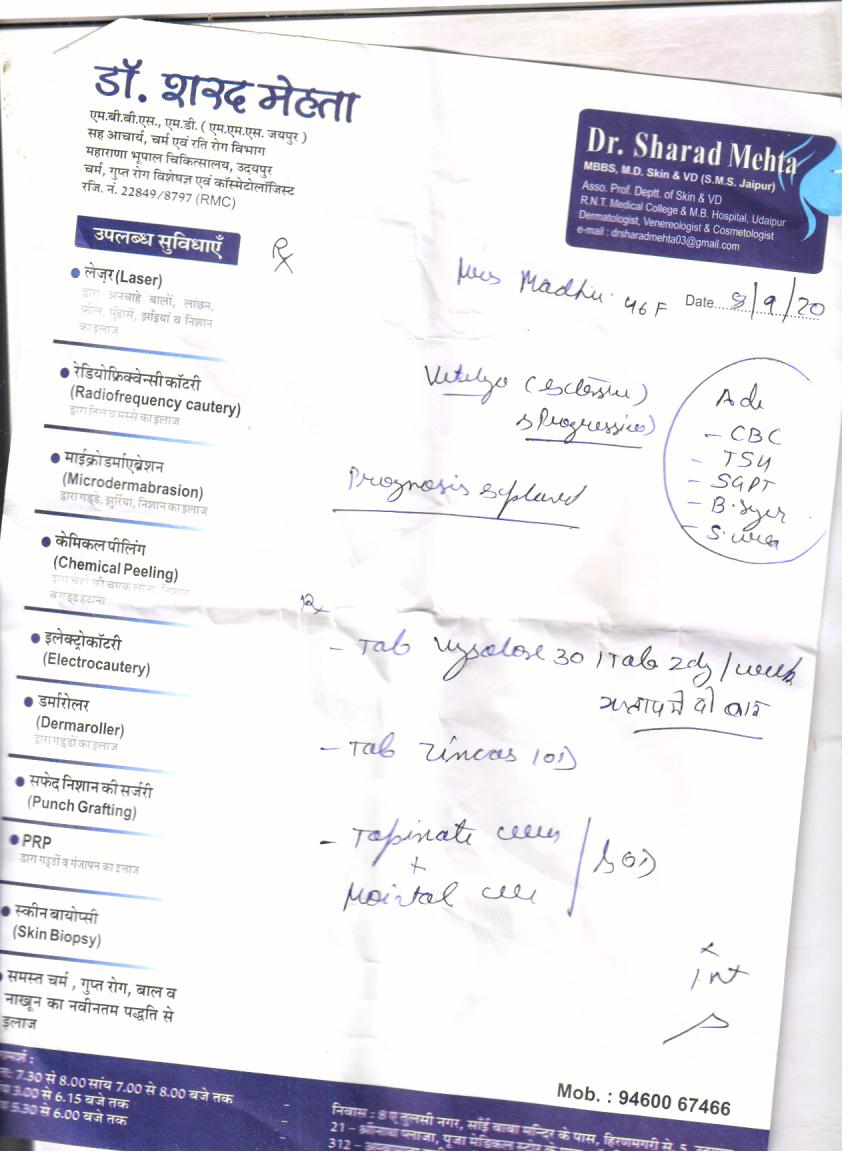 डॉ. शरद मेहता
एम.बी.बी.एस., एम.डी. ( एम.एम.एस. जयपुर )
सह आचार्य, चर्म एवं रति रोग विभाग
महाराणा भूपाल चिकित्सालय, उदयपुर
चर्म, गुप्त रोग विशेषज्ञ एवं कॉस्मेटोलॉजिस्ट
रजि. नं. 22849/8797 (RMC)
Dr. Sharad Mehta
MBBS, M.D. Skin & VD (S.M.S. Jaipur)
Asso. Prof. Deptt. of Skin & VD
R.N.T. Medical College & M.B. Hospital, Udaipur
Dermatologist, Venereologist & Cosmetologist
e-mail : drsharadmehta03@gmail.com
उपलब्ध सुविधाएँ
℞
Madhu 46 F Date 8/9/20
लेज़र (Laser)
द्वारा अनचाहे बालों, लांछन,
कील, मुँहासे, झाँइयां व निशान
का इलाज
रेडियोफ्रिक्वेन्सी कॉटरी
(Radiofrequency cautery)
द्वारा तिल व मस्से का इलाज
माईक्रोडर्माएब्रेशन
(Microdermabrasion)
द्वारा गड्डे, झुर्रियां, निशान का इलाज
केमिकल पीलिंग
(Chemical Peeling)
इलेक्ट्रोकॉटरी
(Electrocautery)
डर्मारोलर
(Dermaroller)
द्वारा गड्डों का इलाज
सफेद निशान की सर्जरी
(Punch Grafting)
PRP
द्वारा गड्डों व गंजापन का इलाज
स्कीन बायोप्सी
(Skin Biopsy)
समस्त चर्म , गुप्त रोग, बाल व
नाखून का नवीनतम पद्धति से
इलाज
Progressive)
Prognosis explained
Adv
- CBC
- TSH
- SGPT
- B. Sugar
- S. urea
℞
- Tab 30 1 Tab 2 day / week
सप्ताह में दो बार
- Tab Zincas 1 OD
- Tab
+
cream
Mob. : 94600 67466
7.30 से 8.00 सांय 7.00 से 8.00 बजे तक
3.00 से 6.15 बजे तक
5.30 से 6.00 बजे तक
निवास : 8 ए तुलसी नगर, साँई बाबा मन्दिर के पास, हिरणमगरी से. 5,
21 - श्रीनाथ प्लाजा, पूजा मेडिकल स्टोर के पास
312 -